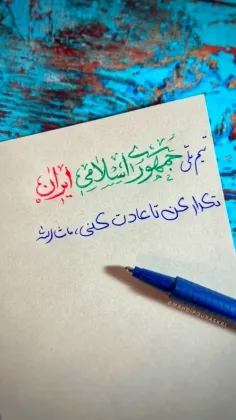 تیم ملی جمهوری اسلامی ایران
تکرار کن تا عادت کنی،